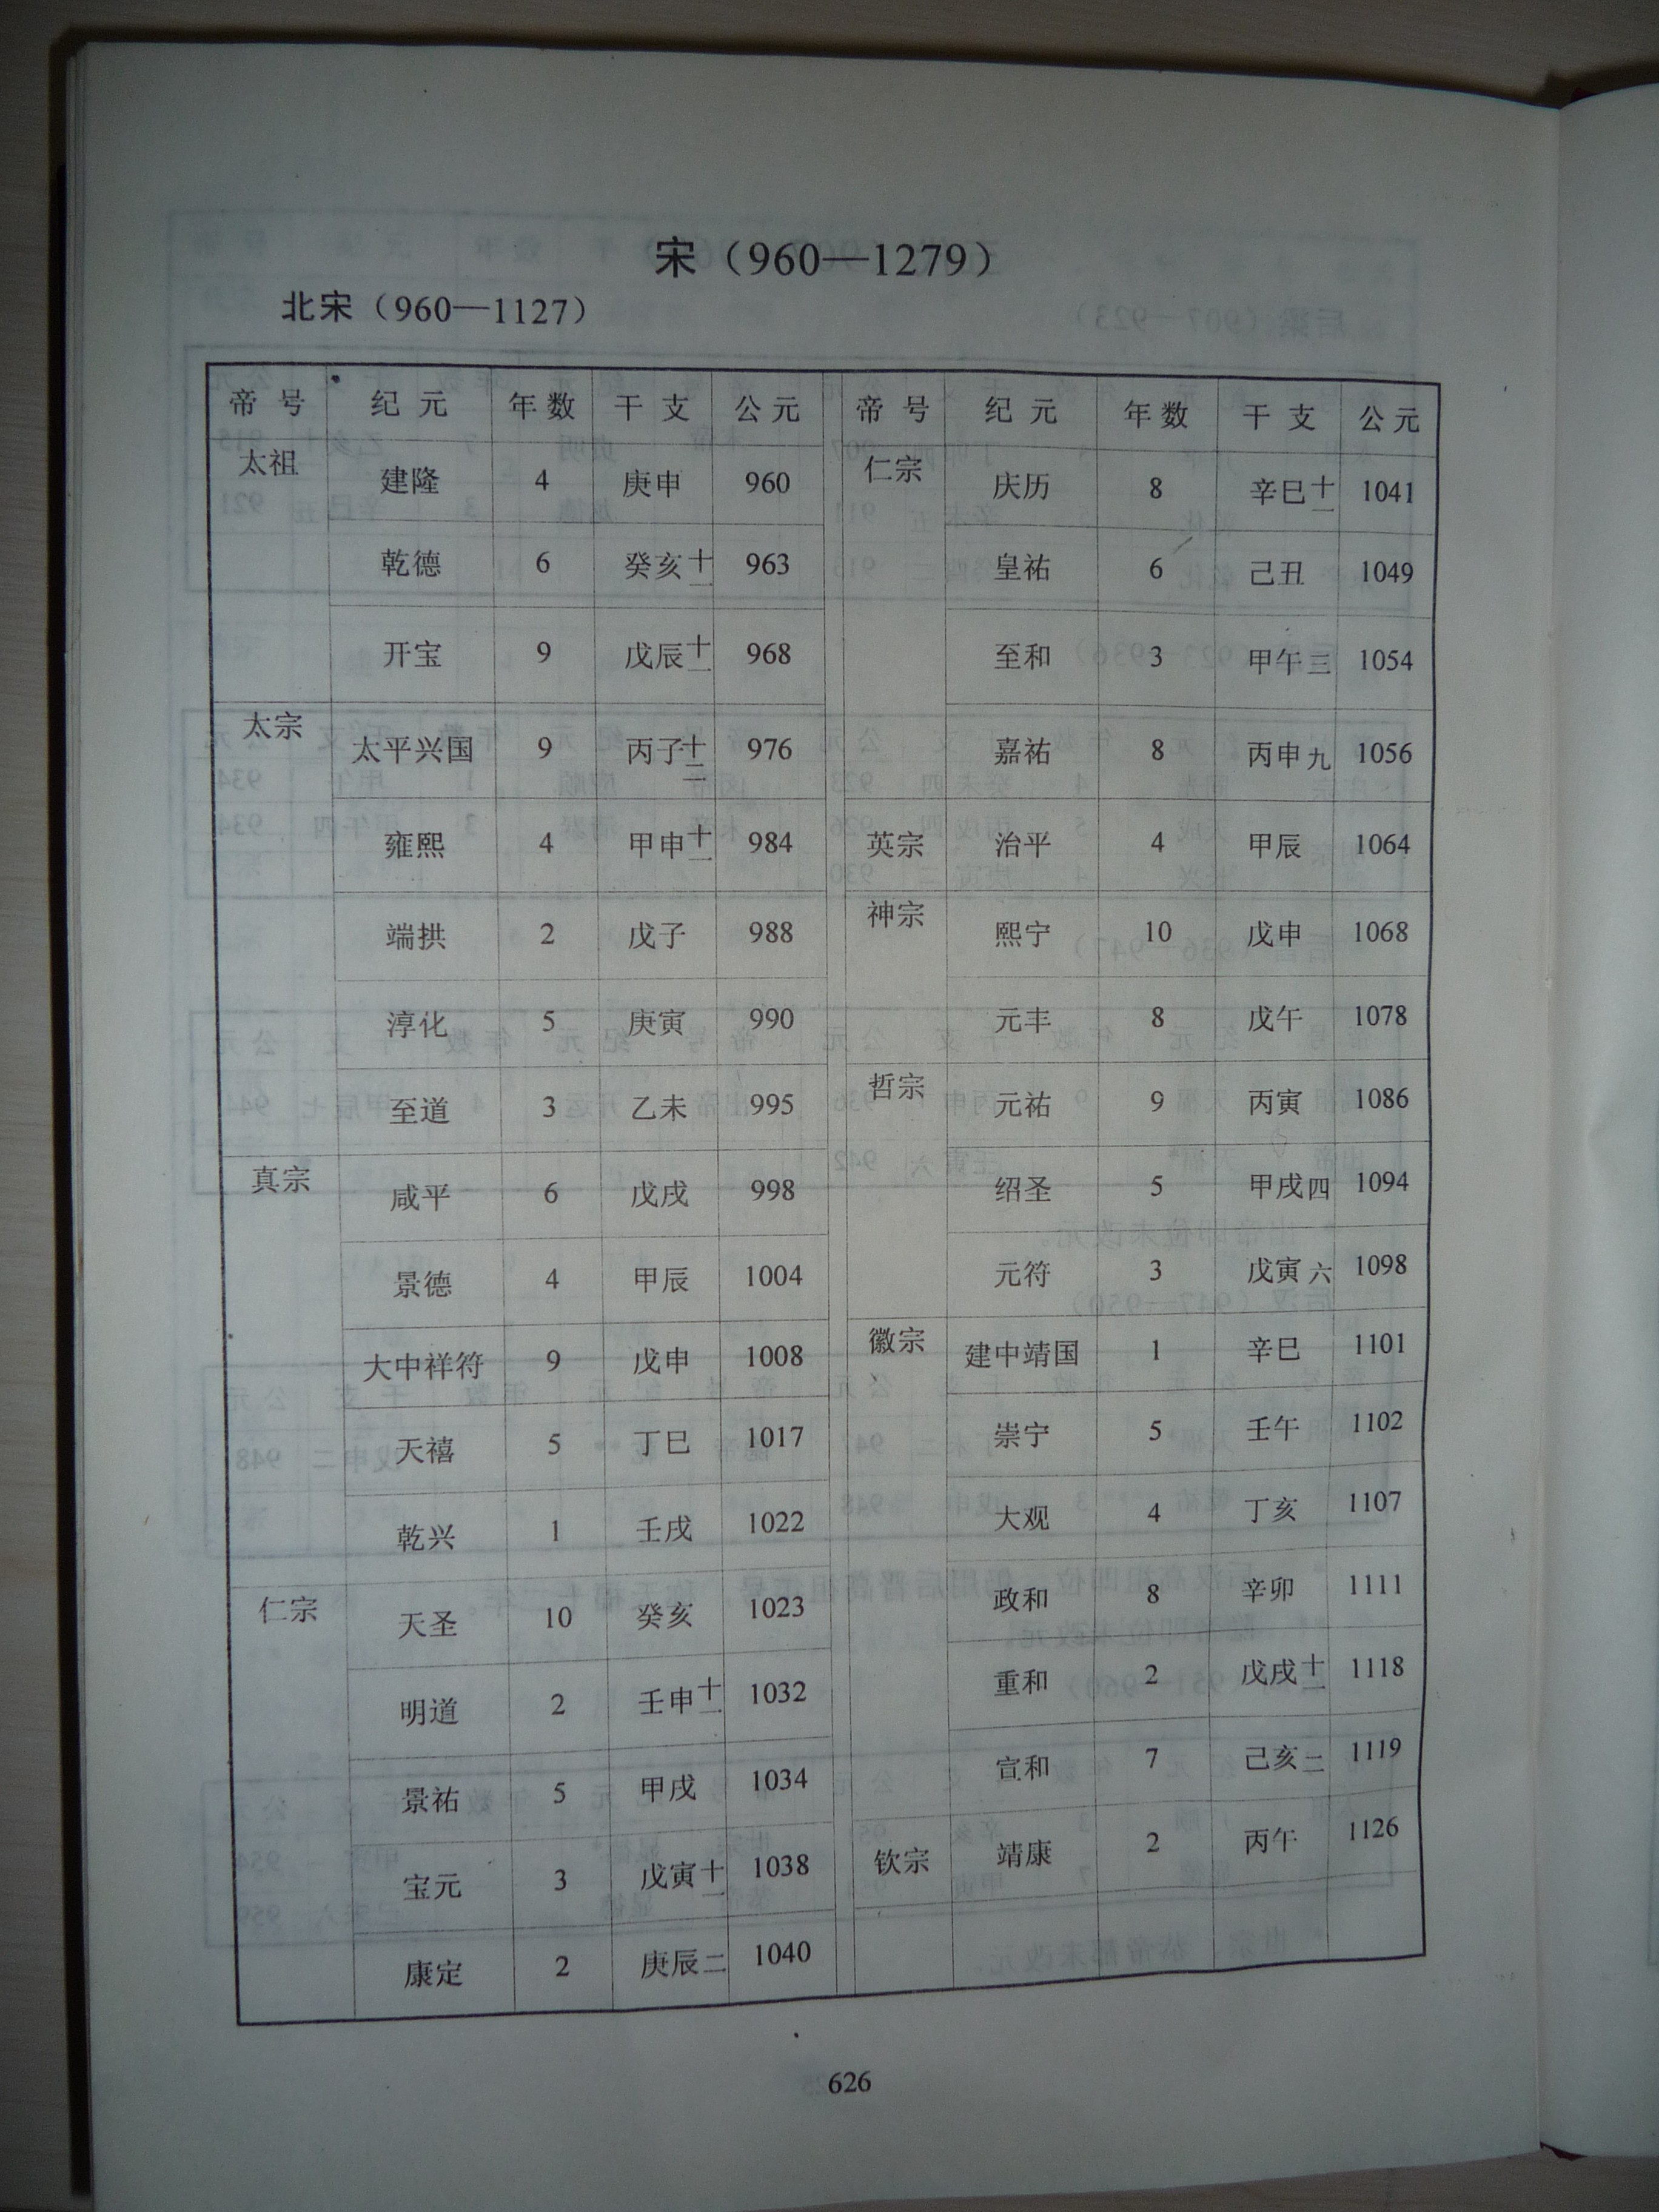 宋（960—1279）
北宋（960—1127）
帝号 纪元 年数 干支 公元 帝号 纪元 年数 干支 公元
太祖 建隆 4 庚申 960 仁宗 庆历 8 辛巳十一 1041
乾德 6 癸亥十一 963 皇祐 6 己丑 1049
开宝 9 戊辰十一 968 至和 3 甲午三 1054
太宗 太平兴国 9 丙子十二 976 嘉祐 8 丙申九 1056
雍熙 4 甲申十一 984 英宗 治平 4 甲辰 1064
端拱 2 戊子 988 神宗 熙宁 10 戊申 1068
淳化 5 庚寅 990 元丰 8 戊午 1078
至道 3 乙未 995 哲宗 元祐 9 丙寅 1086
真宗 咸平 6 戊戌 998 绍圣 5 甲戌四 1094
景德 4 甲辰 1004 元符 3 戊寅六 1098
大中祥符 9 戊申 1008 徽宗 建中靖国 1 辛巳 1101
天禧 5 丁巳 1017 崇宁 5 壬午 1102
乾兴 1 壬戌 1022 大观 4 丁亥 1107
仁宗 天圣 10 癸亥 1023 政和 8 辛卯 1111
明道 2 壬申十一 1032 重和 2 戊戌十一 1118
景祐 5 甲戌 1034 宣和 7 己亥二 1119
宝元 3 戊寅十一 1038 钦宗 靖康 2 丙午 1126
康定 2 庚辰二 1040
626